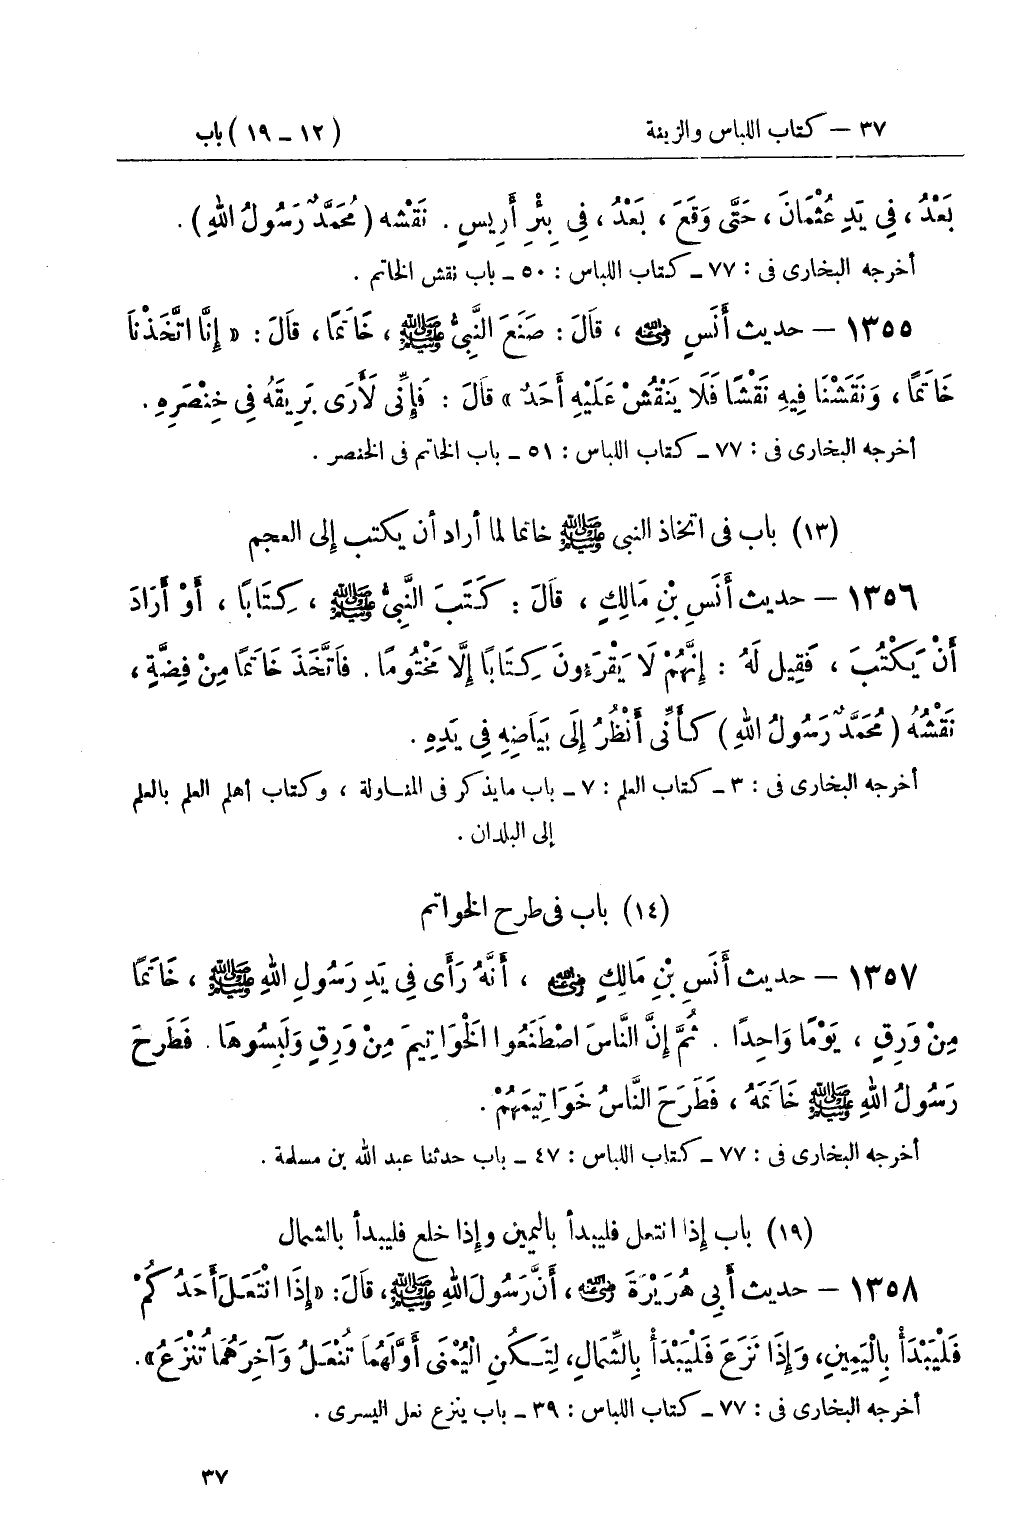 ٣٧ – كتاب اللباس والزينة (١٢ – ١٩) باب
بَعْدُ ، فِي يَدِ عُثْمَانَ ، حَتَّى وَقَعَ ، بَعْدُ ، فِي بِئْرِ أَرِيسٍ . نَقْشه ( مُحَمَّدٌ رَسُولُ اللهِ ) .
أخرجه البخارى فى : ٧٧ – كتاب اللباس : ٥٠ – باب نقش الخاتم .
١٣٥٥ – حديث أَنَسٍ رضي الله عنه ، قَالَ : صَنَعَ النَّبِيُّ ﷺ ، خَاتَمًا ، قَالَ : « إِنَّا اتَّخَذْنَا
خَاتَمًا ، وَنَقَشْنَا فِيهِ نَقْشًا فَلَا يَنْقُشْ عَلَيْهِ أَحَدٌ » قَالَ : فَإِنِّى لَأَرَى بَرِيقَهُ فِى خِنْصَرِهِ .
أخرجه البخارى فى : ٧٧ – كتاب اللباس : ٥١ – باب الخاتم فى الخنصر .
(١٣) باب فى اتخاذ النبى ﷺ خاتما لما أراد أن يكتب إلى العجم
١٣٥٦ – حديث أَنَسِ بْنِ مَالِكٍ ، قَالَ : كَتَبَ النَّبِيُّ ﷺ ، كِتَابًا ، أَوْ أَرَادَ
أَنْ يَكْتُبَ ، فَقِيل لَهُ : إِنَّهُمْ لَا يَقْرَءُونَ كِتَابًا إِلَّا مَخْتُومًا . فَاتَّخَذَ خَاتَمًا مِنْ فِضَّةٍ ،
نَقْشُهُ ( مُحَمَّدٌ رَسُولُ اللهِ ) كَأَنِّى أَنْظُرُ إِلَى بَيَاضِهِ فِى يَدِهِ .
أخرجه البخارى فى : ٣ – كتاب العلم : ٧ – باب مايذكر فى المناولة ، وكتاب أهلم العلم بالعلم
إلى البلدان .
(١٤) باب فى طرح الخواتم
١٣٥٧ – حديث أَنَسِ بْنِ مَالِكٍ رضي الله عنه ، أَنَّهُ رَأَى فِى يَدِ رَسُولِ اللهِ ﷺ ، خَاتَمًا
مِنْ وَرِقٍ ، يَوْمًا وَاحِدًا . ثُمَّ إِنَّ النَّاسَ اصْطَنَعُوا الْخَوَاتِيمَ مِنْ وَرِقٍ وَلَبِسُوهَا . فَطَرَحَ
رَسُولُ اللهِ ﷺ خَاتَمَهُ ، فَطَرَحَ النَّاسُ خَوَاتِيمَهُمْ .
أخرجه البخارى فى : ٧٧ – كتاب اللباس : ٤٧ – باب حدثنا عبد الله بن مسلمة .
(١٩) باب إذا انتعل فليبدأ باليمين وإذا خلع فليبدأ بالشمال
١٣٥٨ – حديث أَبِى هُرَيْرَةَ رضي الله عنه ، أَنَّ رَسُولَ اللهِ ﷺ ، قَالَ : « إِذَا انْتَعَلَ أَحَدُكُمْ
فَلْيَبْدَأْ بِالْيَمِينِ، وَإِذَا نَزَعَ فَلْيَبْدَأْ بِالشِّمَالِ، لِتَكُنِ الْيُمْنَى أَوَّلَهُمَا تُنْعَلُ وَآخِرَهُمَا تُنْزَعُ » .
أخرجه البخارى فى : ٧٧ – كتاب اللباس : ٣٩ – باب ينزع نعل اليسرى .
٣٧